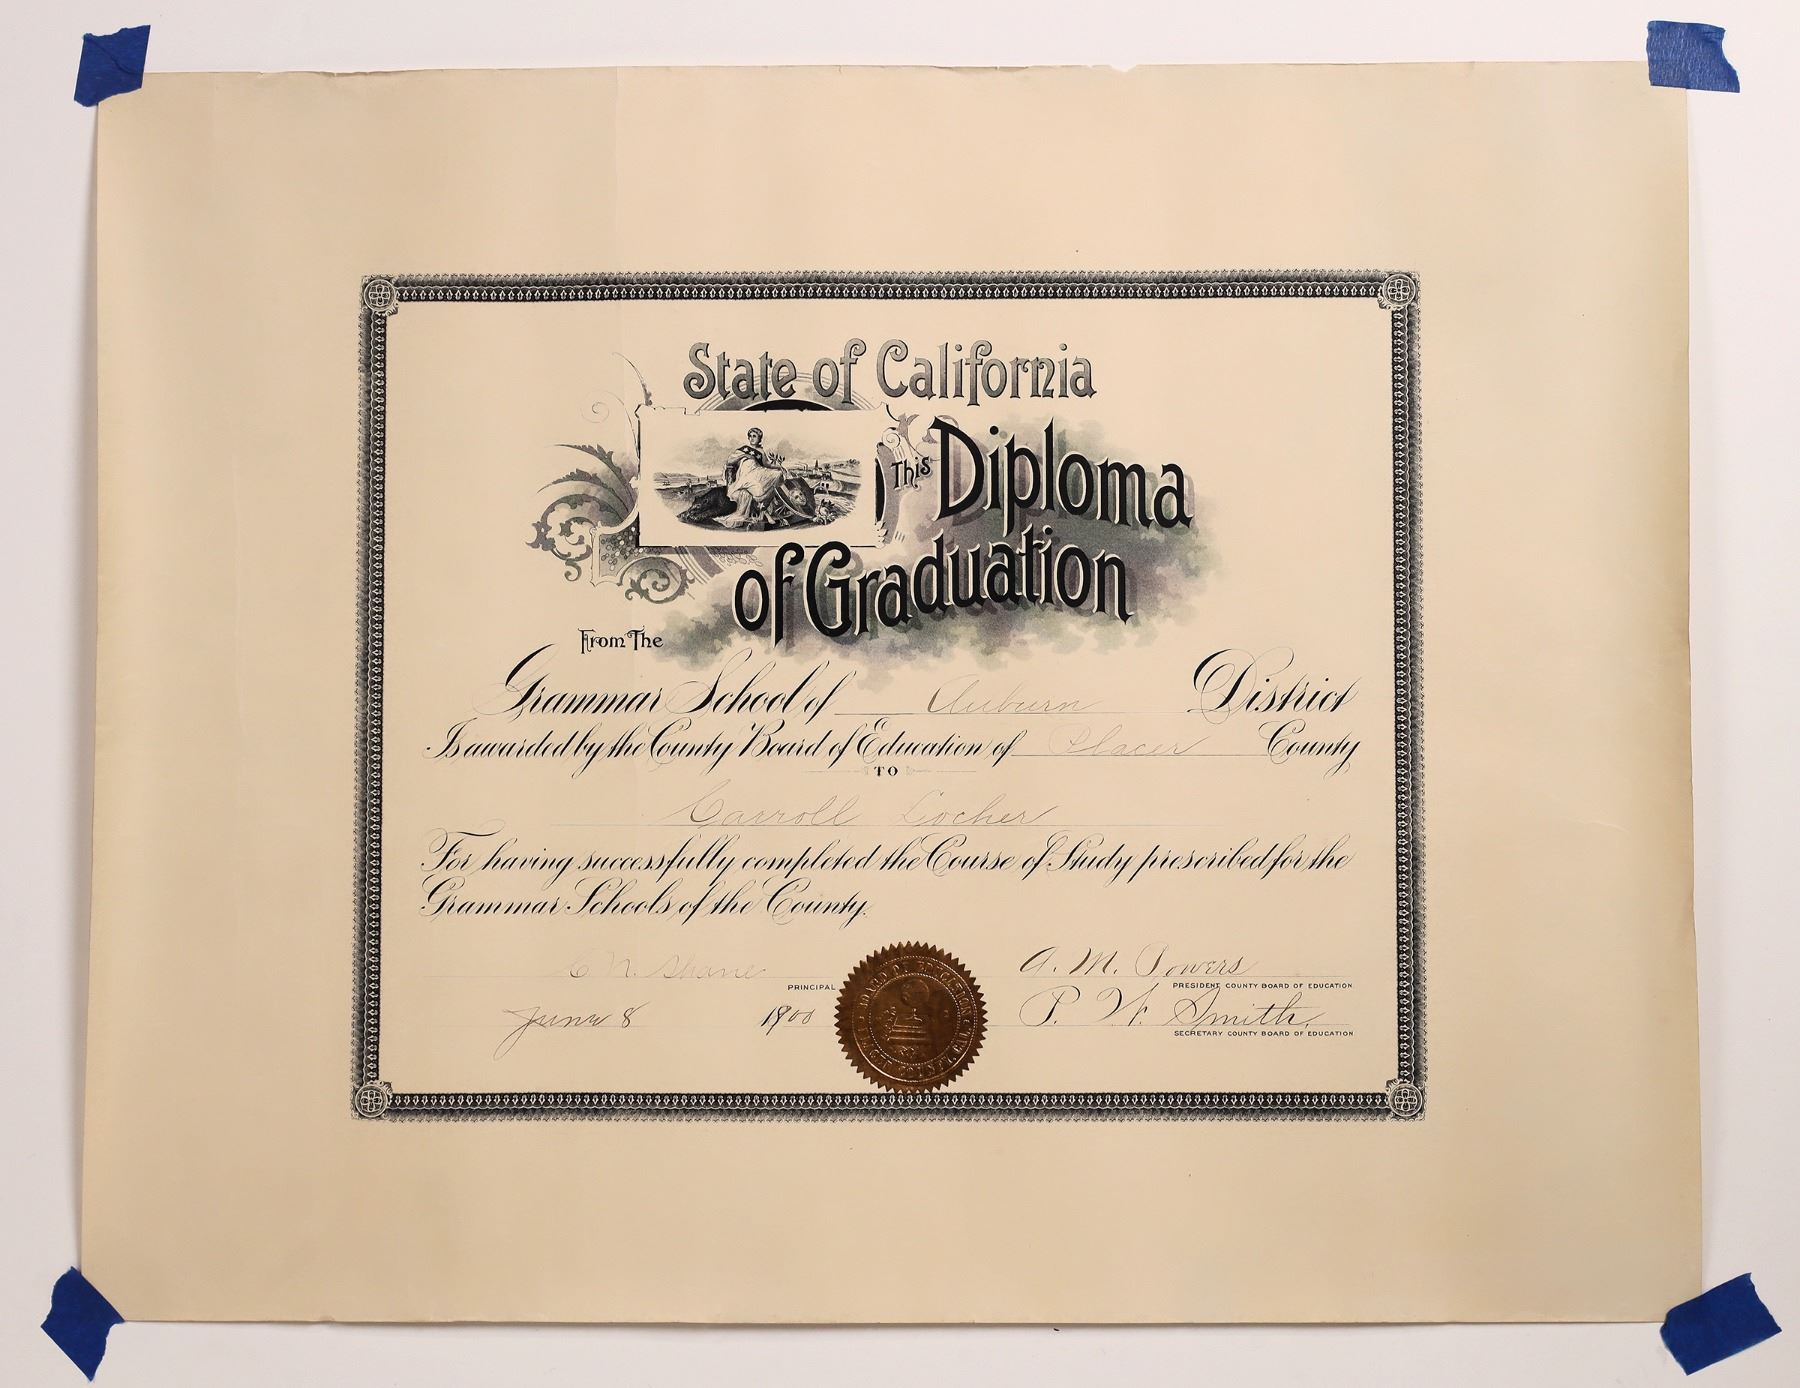 State of California
This Diploma
of Graduation
From The
Grammar School of Auburn District
Is awarded by the County Board of Education of Placer County
TO
Carroll Locher
For having successfully completed the Course of Study prescribed for the
Grammar Schools of the County.
C N. Shane A. M. Powers
PRINCIPAL PRESIDENT COUNTY BOARD OF EDUCATION
June 8 1900 P. W. Smith,
SECRETARY COUNTY BOARD OF EDUCATION
BOARD OF EDUCATION,
COUNTY, CAL.